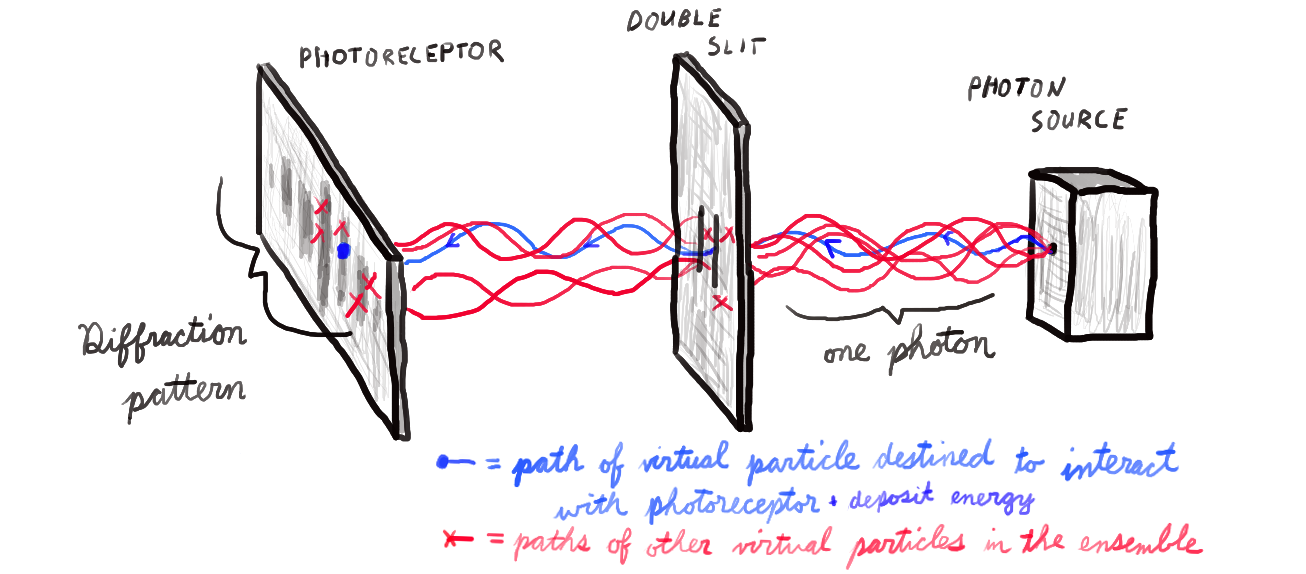 PHOTORECEPTOR
DOUBLE
SLIT
PHOTON
SOURCE
Diffraction
pattern
one photon
= path of virtual particle destined to interact
with photoreceptor + deposit energy
x = paths of other virtual particles in the ensemble